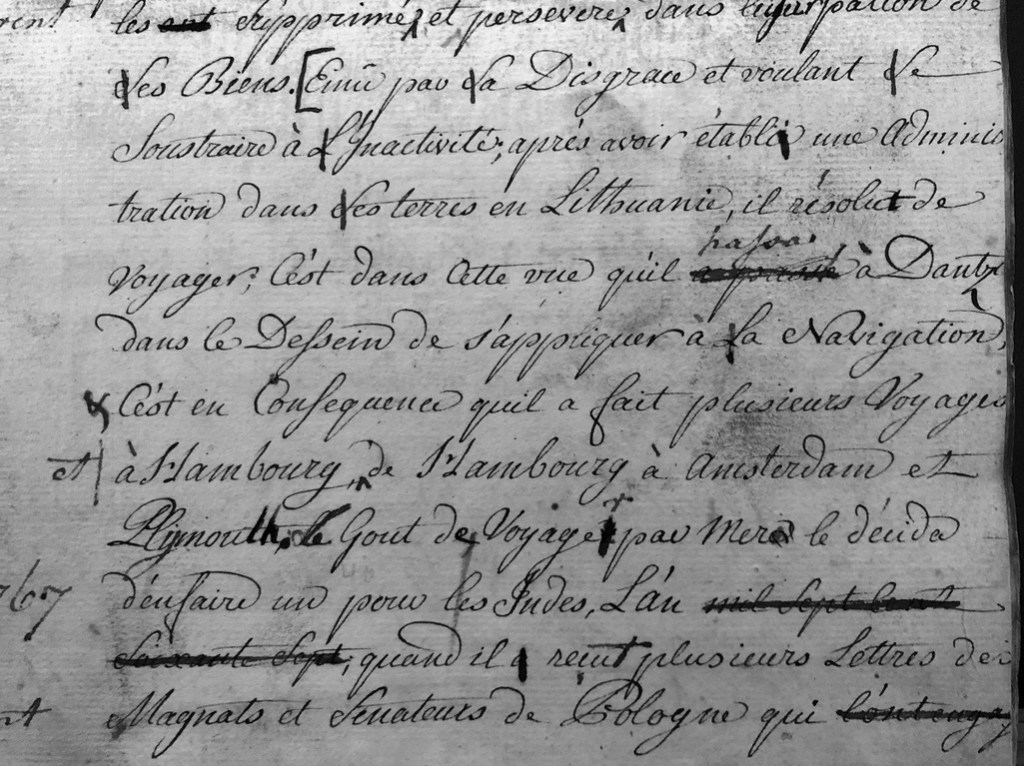 rent les ont supprimé, et perseveré, dans l'usurpation de
Ses Biens. [Emû par Sa Disgrace et voulant Se
Soustraire à L'Inactivité; aprés avoir établi une Adminis
tration dans Ses terres en Lithuanie, il résolut de
passer
Voyager; C'ést dans Cette vue qu'il a passé à Dantz
dans le Dessein de s'appliquer à La Navigation,
C'ést en Consequence qu'il a fait plusieurs Voyages
et à Hambourg, de Hambourg à Amsterdam et
Plymouth, le Gout de Voyager par Mer le décida
767 d'en faire un pour les Indes, L'an mil Sept Cent
Soixante Sept, quand il recut plusieurs Lettres des
nt Magnats et Senateurs de Pologne qui l'ont engagé